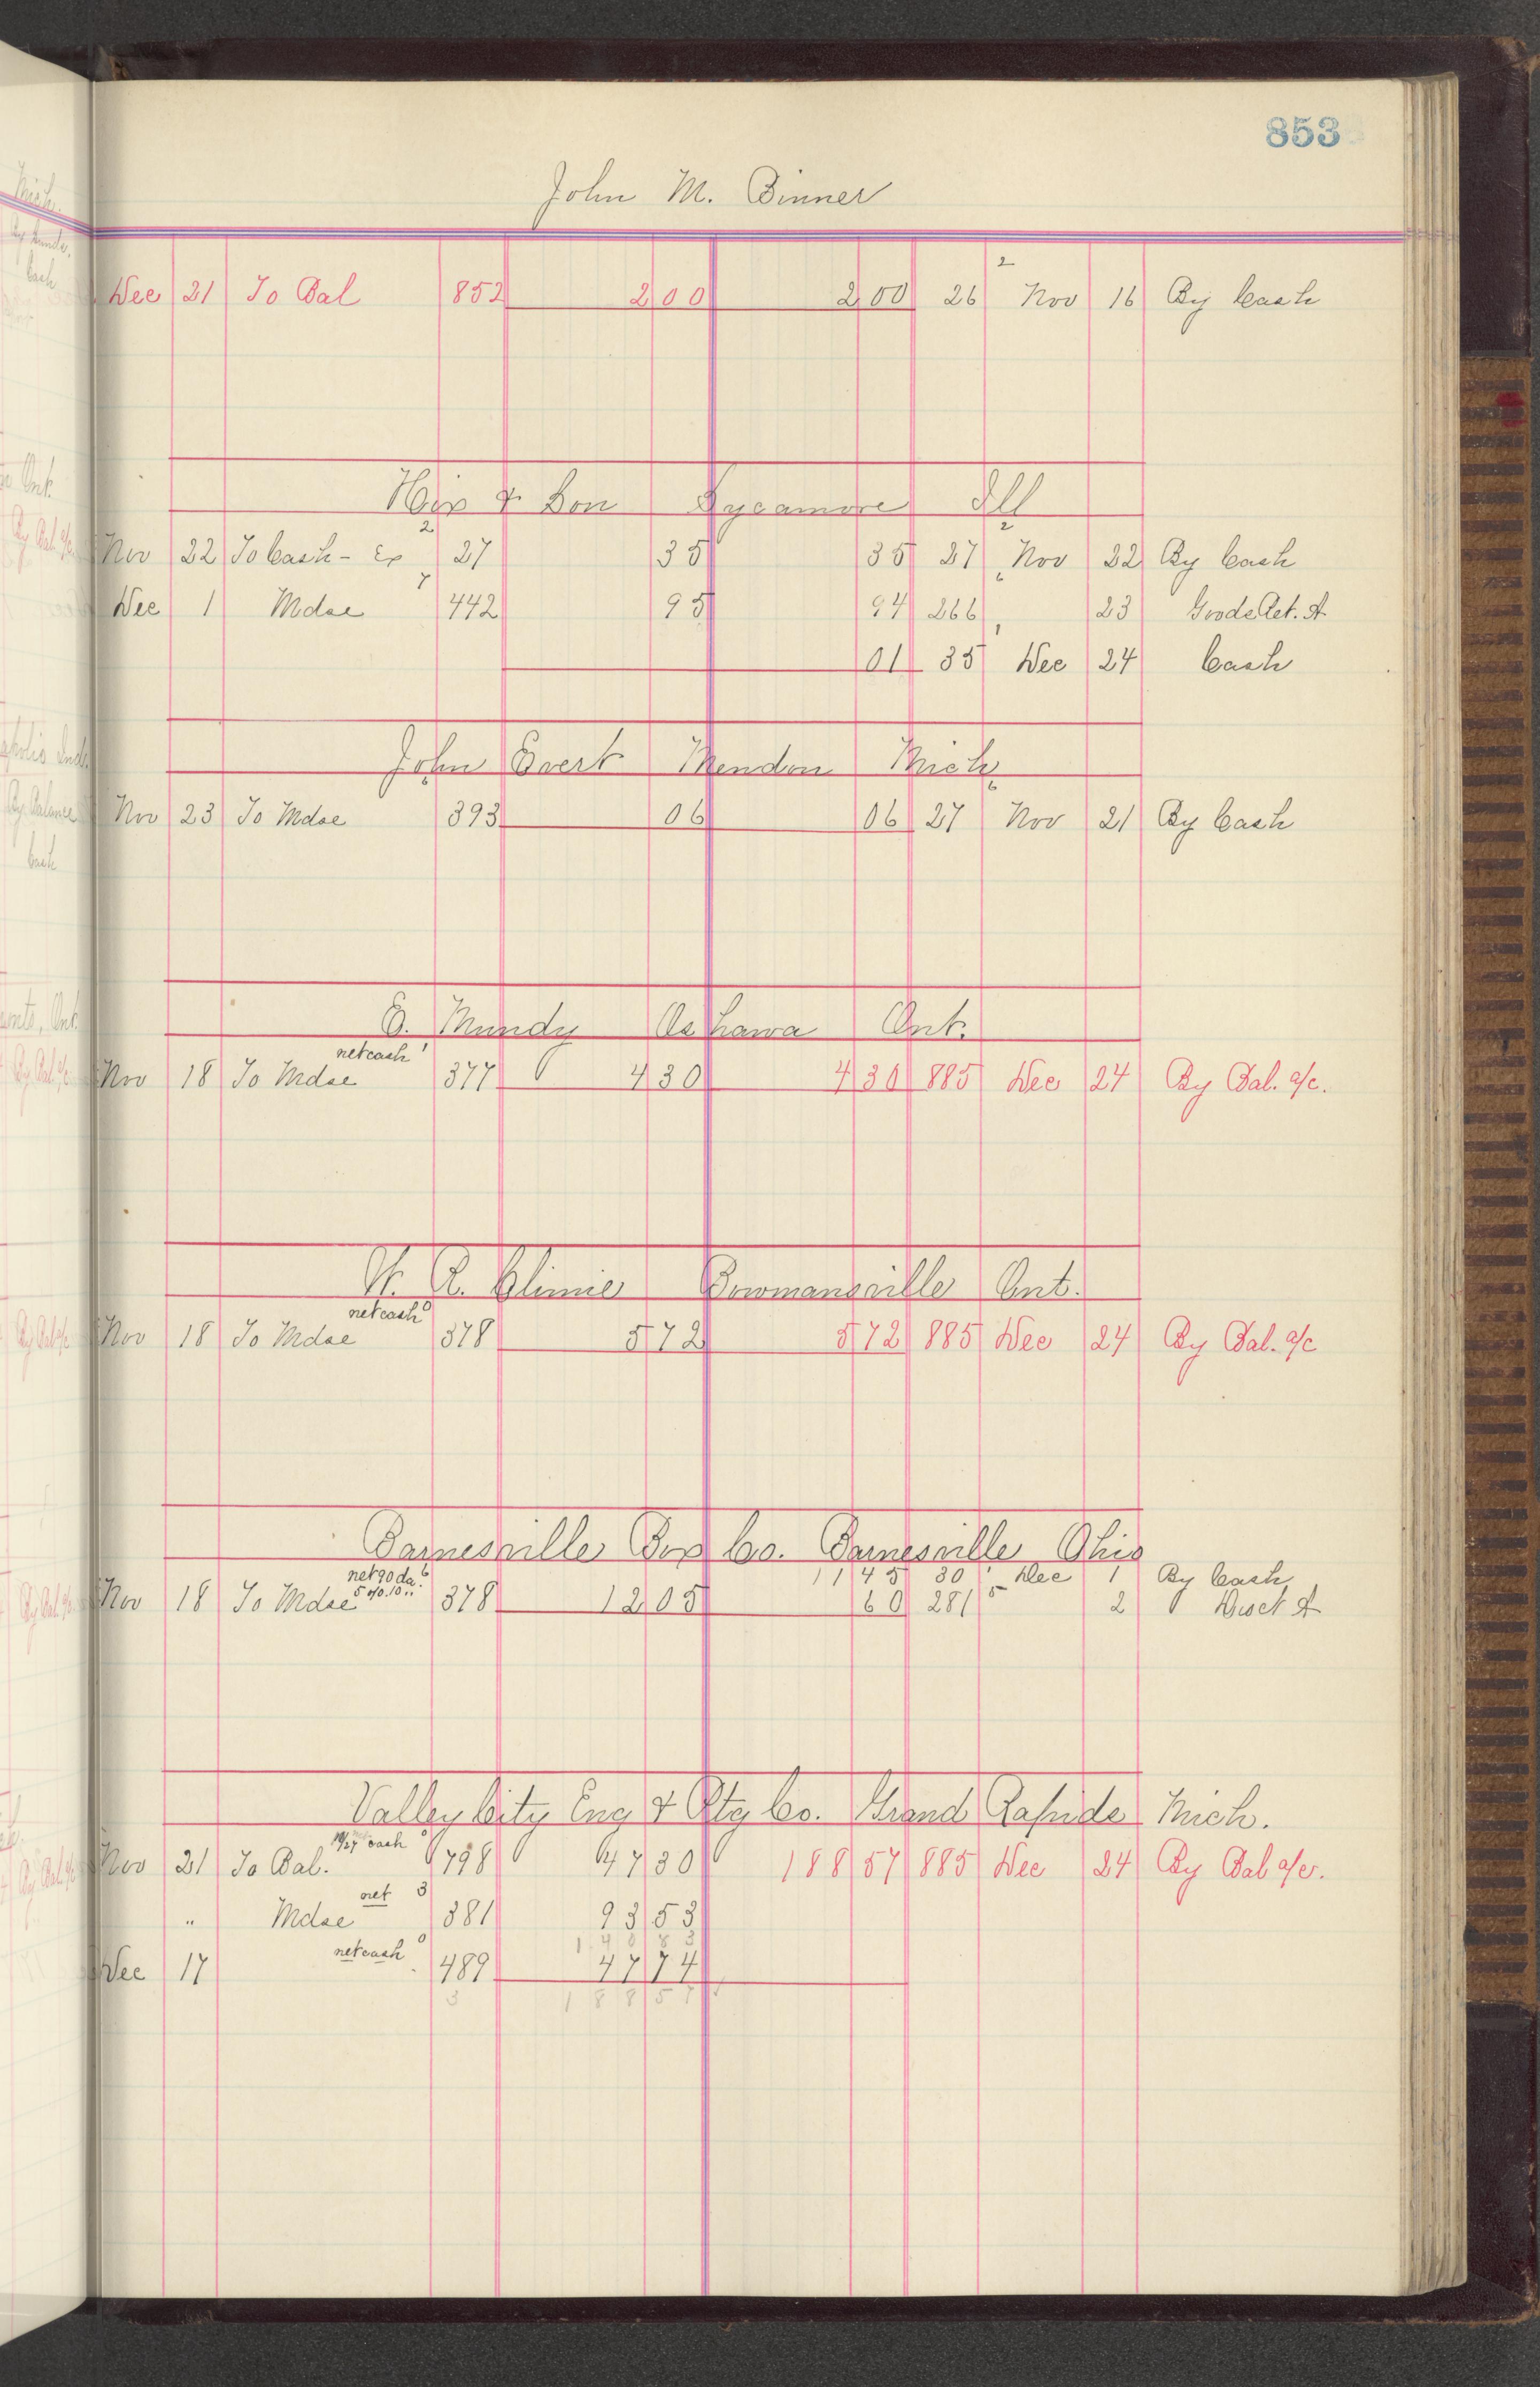 853
John M. Binner
Dec 21 To Bal 852 2 00 2 00 26 2 Nov 16 By Cash
Hix & Son Sycamore Ill
Nov 22 To Cash - Ex 2 27 35 35 27 2 Nov 22 By Cash
Dec 1 Mdse 7 442 95 94 266 6 23 Goods Ret. A
01 35 1 Dec 24 Cash
John Evert Mendon Mich
Nov 23 To Mdse 6 393 06 06 27 6 Nov 21 By Cash
E. Mundy Oshawa Ont.
net cash 1
Nov 18 To Mdse 377 4 30 4 30 885 Dec 24 By Bal. a/c.
W. R. Climie Bowmansville Ont.
net cash 0
Nov 18 To Mdse 378 5 72 5 72 885 Dec 24 By Bal. a/c
Barnesville Box Co. Barnesville Ohio
net 90 da. 6 11 45 30 1 Dec 1 By Cash
Nov 18 To Mdse 5 % 10 " 378 12 05 60 281 5 2 Disct A
Valley City Eng & Ptg Co. Grand Rapids Mich.
10/27 cash 0
Nov 21 To Bal. 798 47 30 188 57 885 Dec 24 By Bal a/c.
" Mdse net 3 381 93 53
1 4 0 8 3
Dec 17 net cash 0 489 47 74
3 1 8 8 5 7